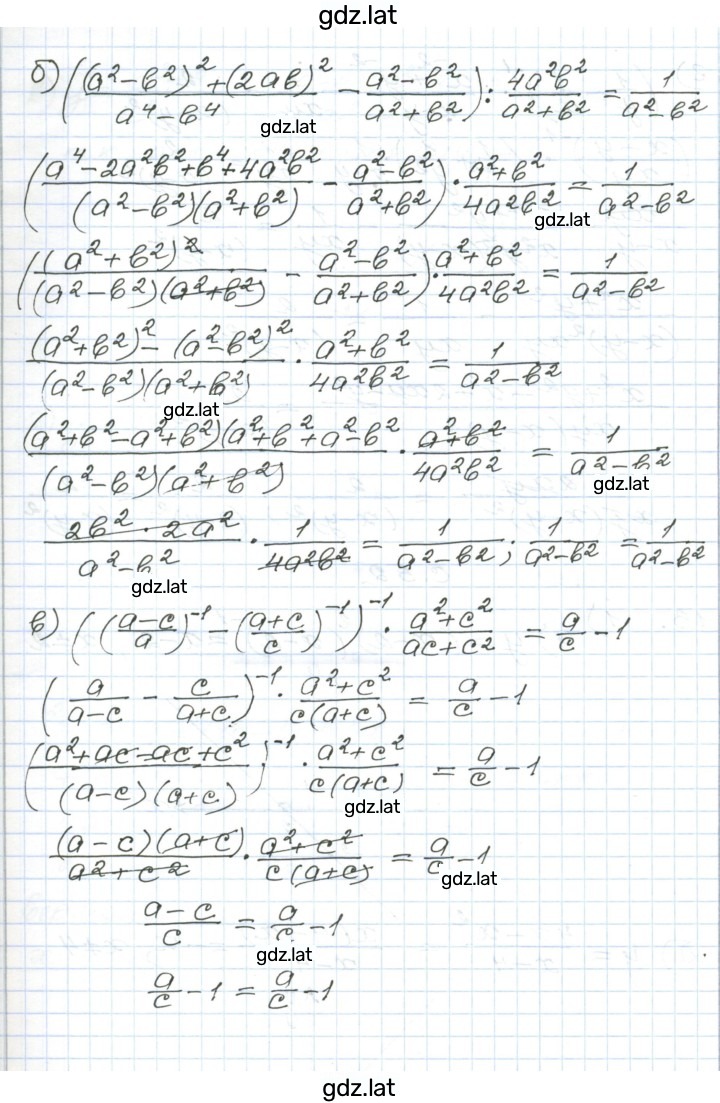 gdz.lat
б) (((a²-b²)²+(2ab)²)/(a⁴-b⁴) - (a²-b²)/(a²+b²)) : 4a²b²/(a²+b²) = 1/(a²-b²)
gdz.lat
((a⁴-2a²b²+b⁴+4a²b²)/((a²-b²)(a²+b²)) - (a²-b²)/(a²+b²)) · (a²+b²)/(4a²b²) = 1/(a²-b²)
gdz.lat
((a²+b²)²/((a²-b²)(a²+b²)) - (a²-b²)/(a²+b²)) · (a²+b²)/(4a²b²) = 1/(a²-b²)
((a²+b²)²-(a²-b²)²)/((a²-b²)(a²+b²)) · (a²+b²)/(4a²b²) = 1/(a²-b²)
gdz.lat
(a²+b²-a²+b²)(a²+b²+a²-b²/((a²-b²)(a²+b²)) · (a²+b²)/(4a²b²) = 1/(a²-b²)
gdz.lat
(2b² · 2a²)/(a²-b²) · 1/(4a²b²) = 1/(a²-b²); 1/(a²-b²) = 1/(a²-b²)
gdz.lat
в) (((a-c)/a)⁻¹-((a+c)/c)⁻¹)⁻¹ · (a²+c²)/(ac+c²) = a/c - 1
(a/(a-c) - c/(a+c))⁻¹ · (a²+c²)/(c(a+c)) = a/c - 1
((a²+ac-ac+c²)/((a-c)(a+c)))⁻¹ · (a²+c²)/(c(a+c)) = a/c - 1
gdz.lat
((a-c)(a+c))/(a²+c²) · (a²+c²)/(c(a+c)) = a/c - 1
gdz.lat
(a-c)/c = a/c - 1
gdz.lat
a/c - 1 = a/c - 1
gdz.lat